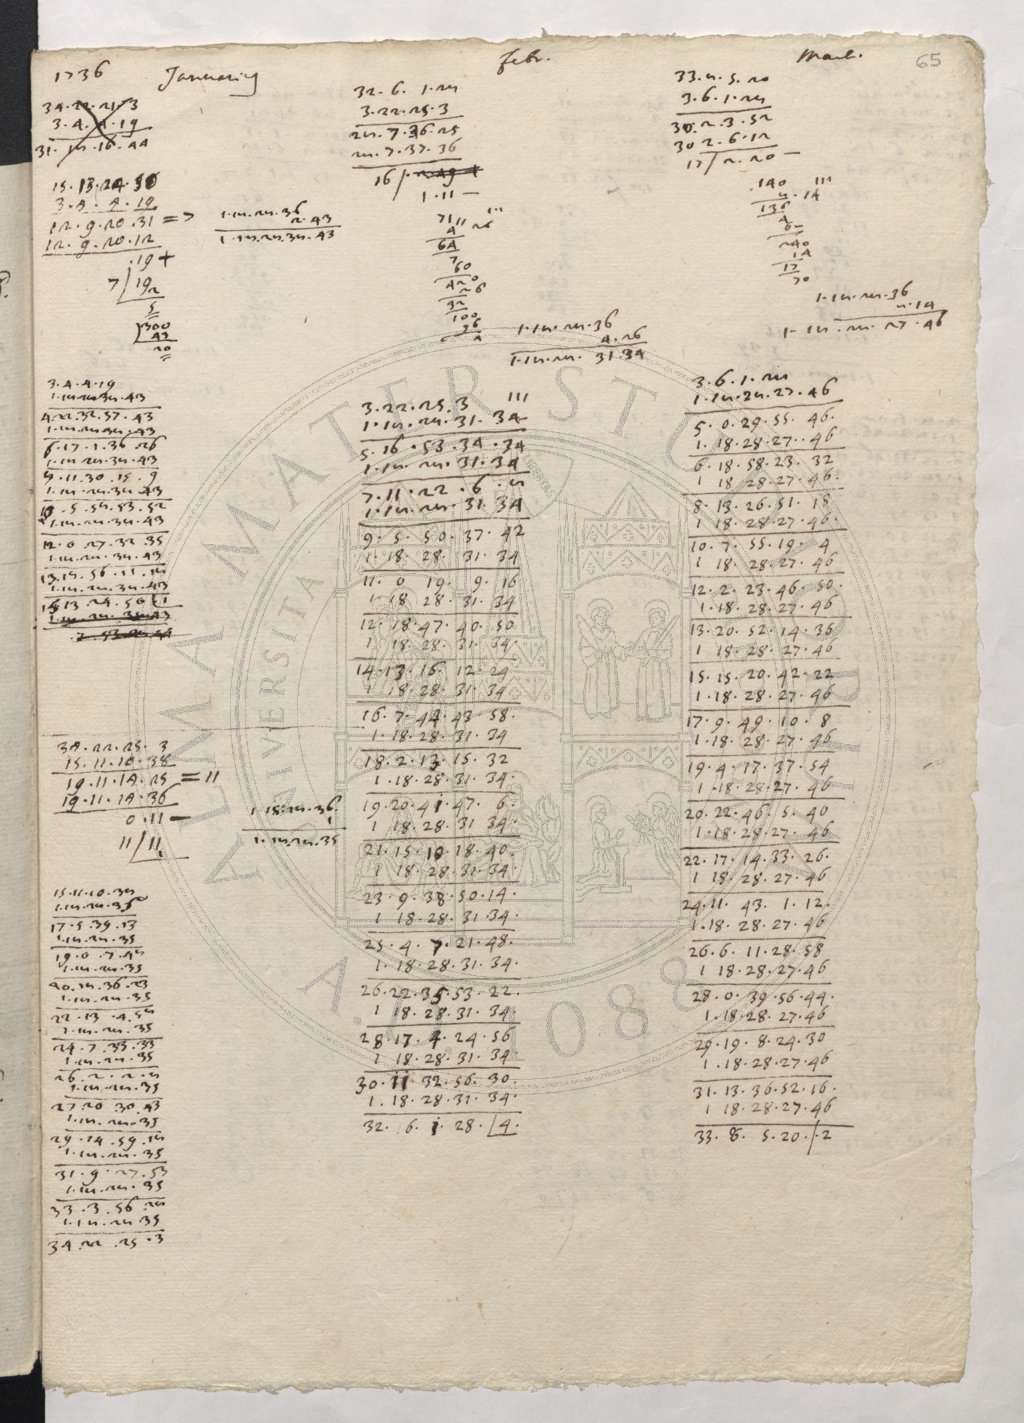 1736 January
34.22.25.3
3.4.4.19
31.18.16.44
15.13.24.50
3.4.4.19
12.9.20.31 = 7
12.9.20.12
.19+
7/19
2
5
300
43
20
1.18.28.36
2.43
1.18.28.38.43
3.4.4.19
1.18.28.38.43
4.22.32.57.43
1.18.28.38.43
6.17.1.36.26
1.18.28.38.43
8.11.30.15.9
1.18.28.38.43
10.5.58.53.52
1.18.28.38.43
12.0.27.32.35
1.18.28.38.43
13.18.56.11.18
1.18.28.38.43
15.13.24.50.1
34.22.25.3
15.11.10.38
19.11.14.25 = 11
19.11.14.36
0.11 —
11/11
1.18.28.36
1
1.18.28.35
15.11.10.38
1.18.28.35
17.5.39.13
1.18.28.35
19.0.7.48
1.18.28.35
20.18.36.23
1.18.28.35
22.13.4.58
1.18.28.35
24.7.33.33
1.18.28.35
26.2.2.8
1.18.28.35
27.20.30.43
1.18.28.35
29.14.59.18
1.18.28.35
31.9.27.53
1.18.28.35
33.3.56.28
1.18.28.35
34.22.25.3
febr.
32.6.1.28
3.22.25.3
28.7.36.25
28.7.37.36
16/
1.11 —
71
4 26
64
7
60
420
26
32
100
36
1.18.28.36
4.26
1.18.28.31.34
3.22.25.3
1.18.28.31.34
5.16.53.34.34
1.18.28.31.34
7.11.22.6.8
1.18.28.31.34
9.5.50.37.42
1.18.28.31.34
11.0.19.9.16
1.18.28.31.34
12.18.47.40.50
1.18.28.31.34
14.13.16.12.24
1.18.28.31.34
16.7.44.43.58.
1.18.28.31.34
18.2.13.15.32
1.18.28.31.34.
19.20.41.47.6.
1.18.28.31.34.
21.15.10.18.40.
1.18.28.31.34.
23.9.38.50.14.
1.18.28.31.34.
25.4.7.21.48.
1.18.28.31.34.
26.22.35.53.22.
1.18.28.31.34.
28.17.4.24.56
1.18.28.31.34
30.11.32.56.30.
1.18.28.31.34.
32.6.1.28.4.
Mart.
65
33.8.5.20
3.6.1.28
30.2.3.52
30.2.6.12
17/2.20 —
140
8.14
136
4
60
240
14
17
70
1.18.28.36
8.14
1.18.28.27.46
3.6.1.28
1.18.28.27.46
5.0.29.55.46.
1.18.28.27.46
6.18.58.23.32
1.18.28.27.46.
8.13.26.51.18
1.18.28.27.46.
10.7.55.19.4
1.18.28.27.46
12.2.23.46.50.
1.18.28.27.46
13.20.52.14.36
1.18.28.27.46
15.15.20.42.22
1.18.28.27.46
17.9.49.10.8
1.18.28.27.46
19.4.17.37.54
1.18.28.27.46
20.22.46.5.40
1.18.28.27.46
22.17.14.33.26.
1.18.28.27.46
24.11.43.1.12.
1.18.28.27.46
26.6.11.28.58
1.18.28.27.46
28.0.39.56.44.
1.18.28.27.46
29.19.8.24.30
1.18.28.27.46
31.13.36.52.16.
1.18.28.27.46
33.8.5.20.2